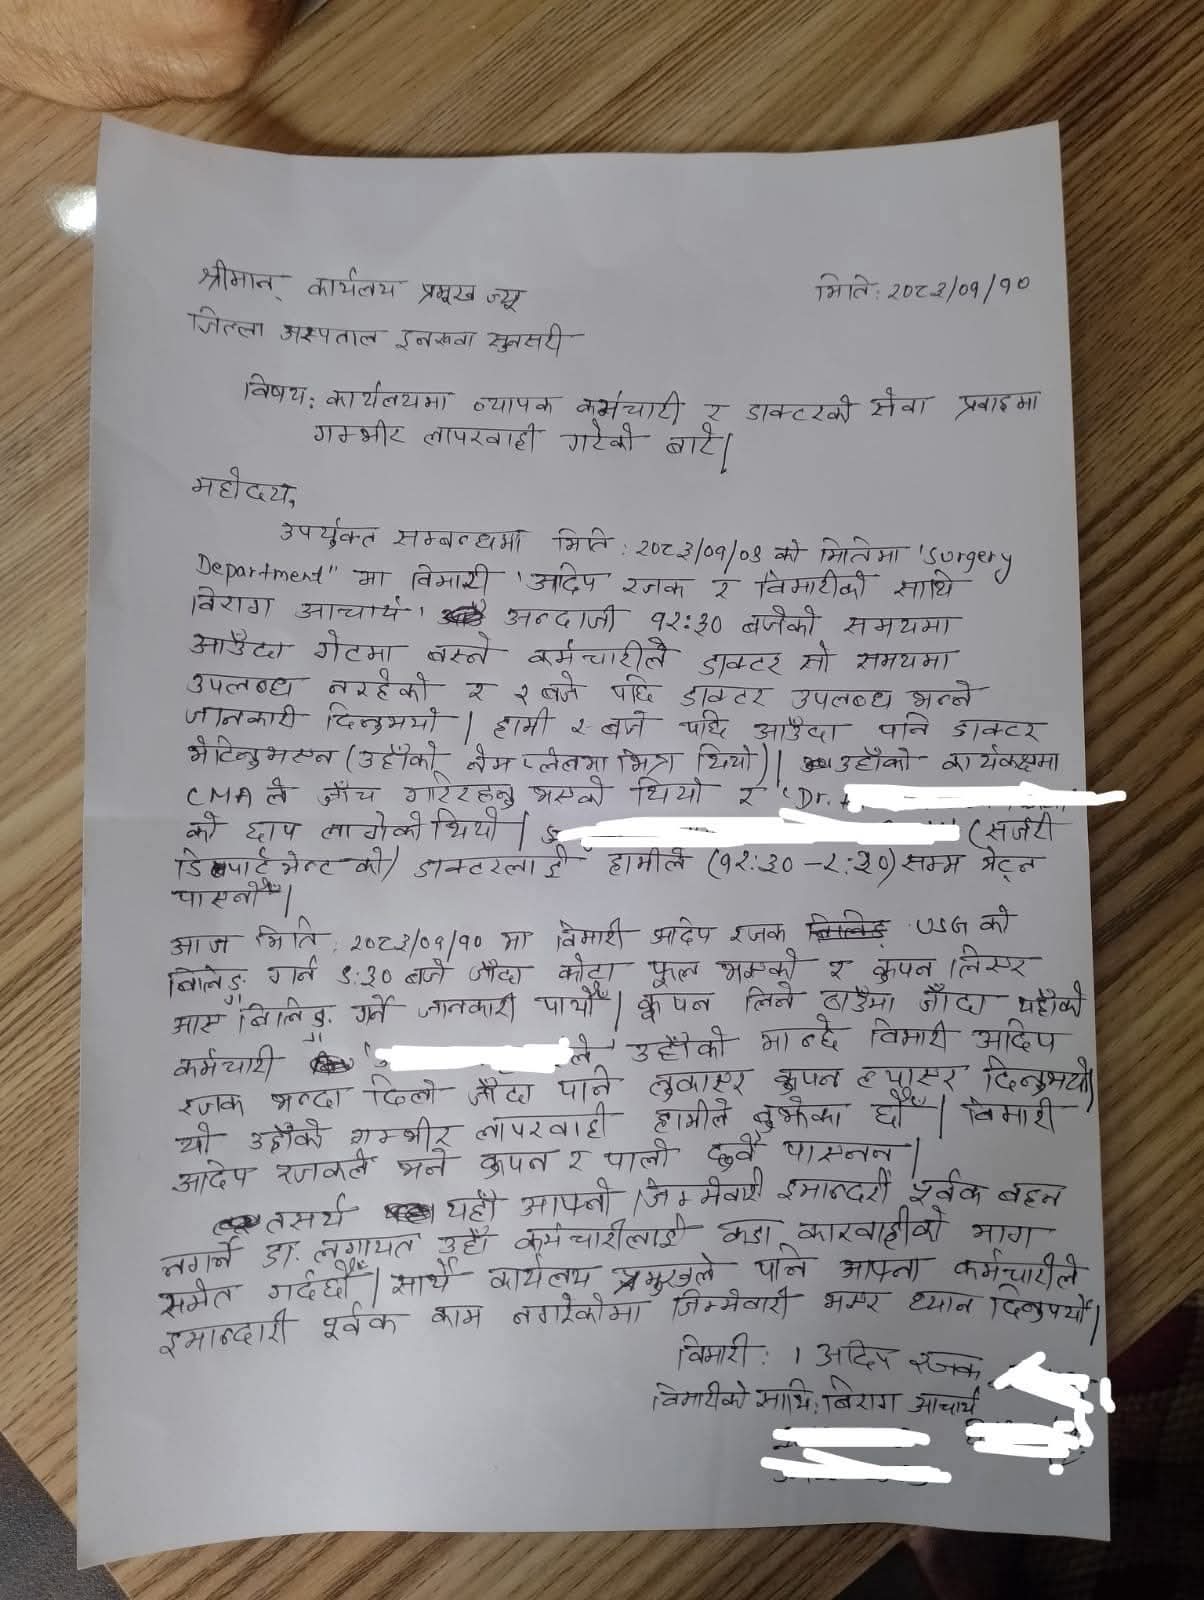 श्रीमान् कार्यलय प्रमुख ज्यू
मिति: २०८३/०१/१०
जिल्ला अस्पताल इनरुवा सुनसरी
विषय: कार्यलयमा व्यापक कर्मचारी र डाक्टरको सेवा प्रवाहमा
गम्भीर लापरवाही गरेको बारे|
महोदय,
उपर्युक्त सम्बन्धमा मिति: २०८३/०१/०९ को मितिमा 'Surgery
Department" मा विमारी 'आदिप रजक र विमारीको साथि
विराग आचार्य' अन्दाजी १२:३० बजेको समयमा
आउँदा गेटमा बस्ने कर्मचारीले डाक्टर सो समयमा
उपलब्ध नरहेको र २ बजे पछि डाक्टर उपलब्ध भन्ने
जानकारी दिनुभयो | हामी २ बजे पछि आउँदा पनि डाक्टर
भेटिनुभएन (उहाँको नेम प्लेतमा भित्र थियो)| उहाँको कार्यकक्षमा
CMA ले जाँच गरिरहनु भएको थियो र 'Dr.
को छाप लागेको थियो | (सर्जरी
डिपार्टमेन्टको) डाक्टरलाई हामीले (१२:३० - २:३०) सम्म भेट्न
पाएनौँ |
आज मिति: २०८३/०१/१० मा विमारी आदिप रजक USG को
बिलिङ्ग गर्न ९:३० बजे जाँदा कोटा फूल भएको र कुपन लिएर
मात्र बिलिङ्ग गर्ने जानकारी पायौँ | कुपन लिने ठाउँमा जाँदा यहाँको
कर्मचारी ले उहाँको मान्छे विमारी आदिप
रजक भन्दा ढिलो जाँदा पनि लुकाएर कुपन ल्याएर दिनुभयो|
यो उहाँको गम्भीर लापरवाही हामीले बुझेका छौँ | विमारी
आदिप रजकले भने कुपन र पालो दुवै पाएनन |
तसर्थ यहाँ आफ्नो जिम्मेवारी इमान्दारी पूर्वक बहन
नगर्ने डा. लगायत उहाँ कर्मचारीलाई कडा कारवाहीको माग
समेत गर्दछौँ | साथै कार्यलय प्रमुखले पनि आफ्ना कर्मचारीले
इमान्दारी पूर्वक काम नगरेकोमा जिम्मेवारी भएर ध्यान दिनुपर्यो|
विमारी: । आदिप रजक
विमारीको साथि: बिराग आचार्य